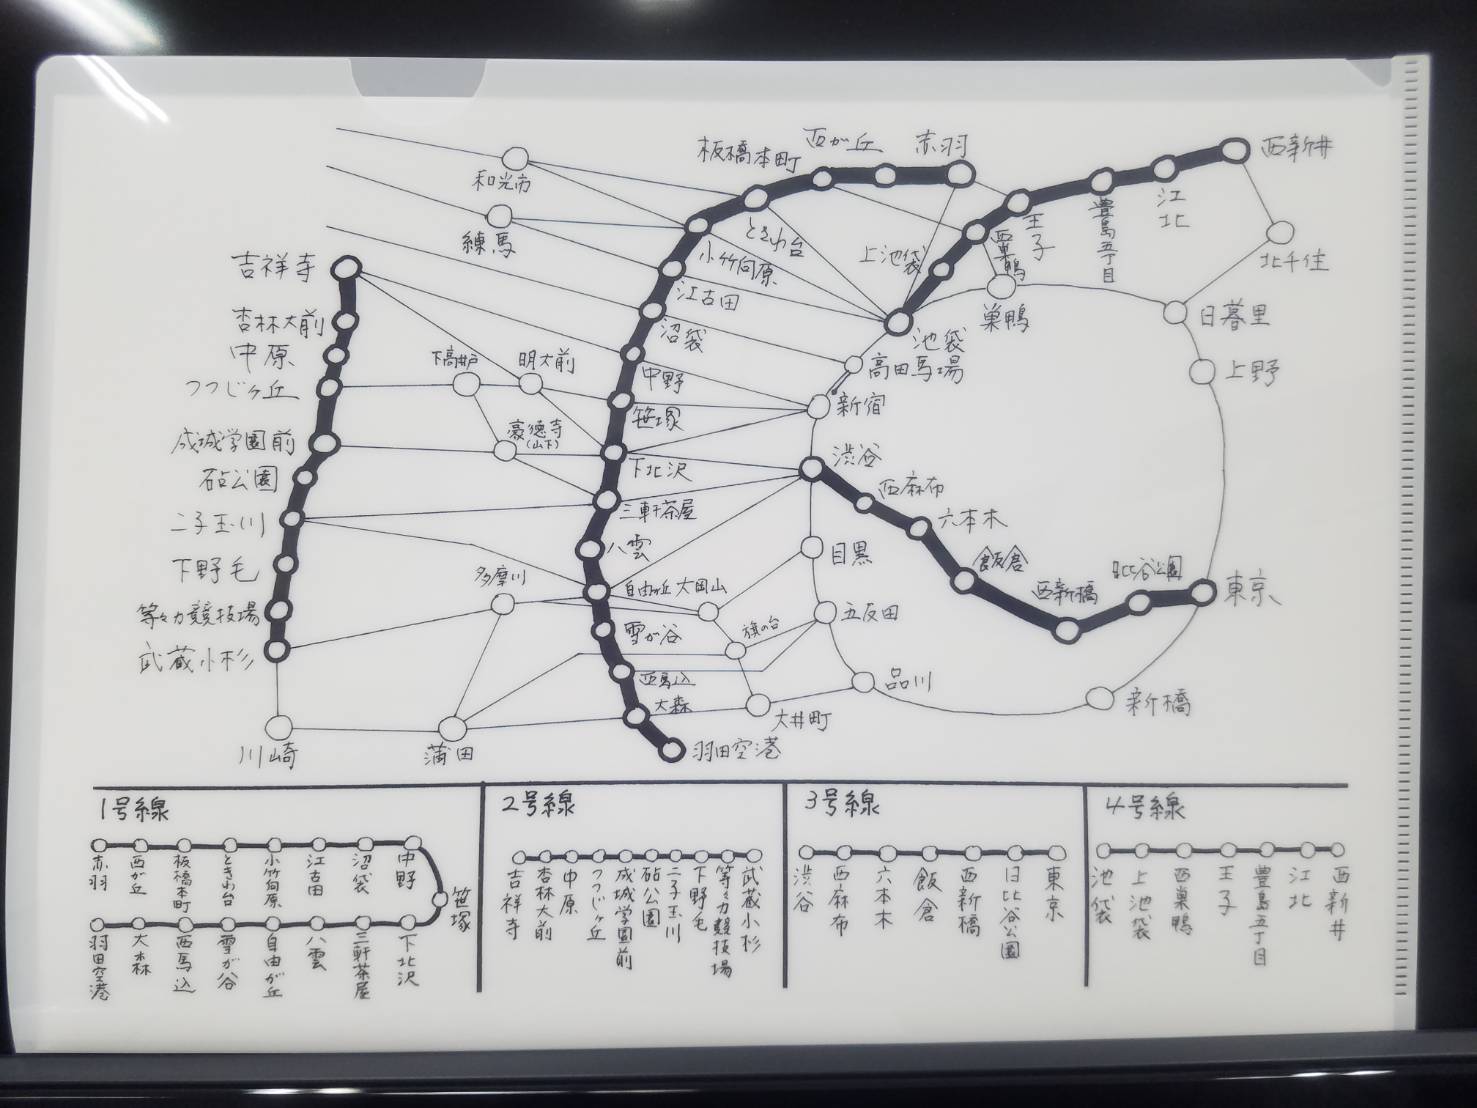 板橋本町
西が丘
赤羽
西新井
和光市
ときわ台
王子
豊島五丁目
江北
練馬
小竹向原
上池袋
西巣鴨
北千住
吉祥寺
江古田
巣鴨
日暮里
杏林大前
沼袋
池袋
中原
下高井戸
明大前
中野
高田馬場
上野
つつじヶ丘
笹塚
新宿
成城学園前
豪徳寺
(山下)
下北沢
渋谷
砧公園
三軒茶屋
西麻布
二子玉川
六本木
八雲
目黒
飯倉
下野毛
多摩川
自由が丘
大岡山
西新橋
日比谷公園
東京
等々力競技場
雪が谷
旗の台
五反田
武蔵小杉
西馬込
品川
大森
大井町
新橋
川崎
蒲田
羽田空港
1号線
赤羽
西が丘
板橋本町
ときわ台
小竹向原
江古田
沼袋
中野
笹塚
羽田空港
大森
西馬込
雪が谷
自由が丘
八雲
三軒茶屋
下北沢
2号線
吉祥寺
杏林大前
中原
つつじヶ丘
成城学園前
砧公園
二子玉川
下野毛
等々力競技場
武蔵小杉
3号線
渋谷
西麻布
六本木
飯倉
西新橋
日比谷公園
東京
4号線
池袋
上池袋
西巣鴨
王子
豊島五丁目
江北
西新井